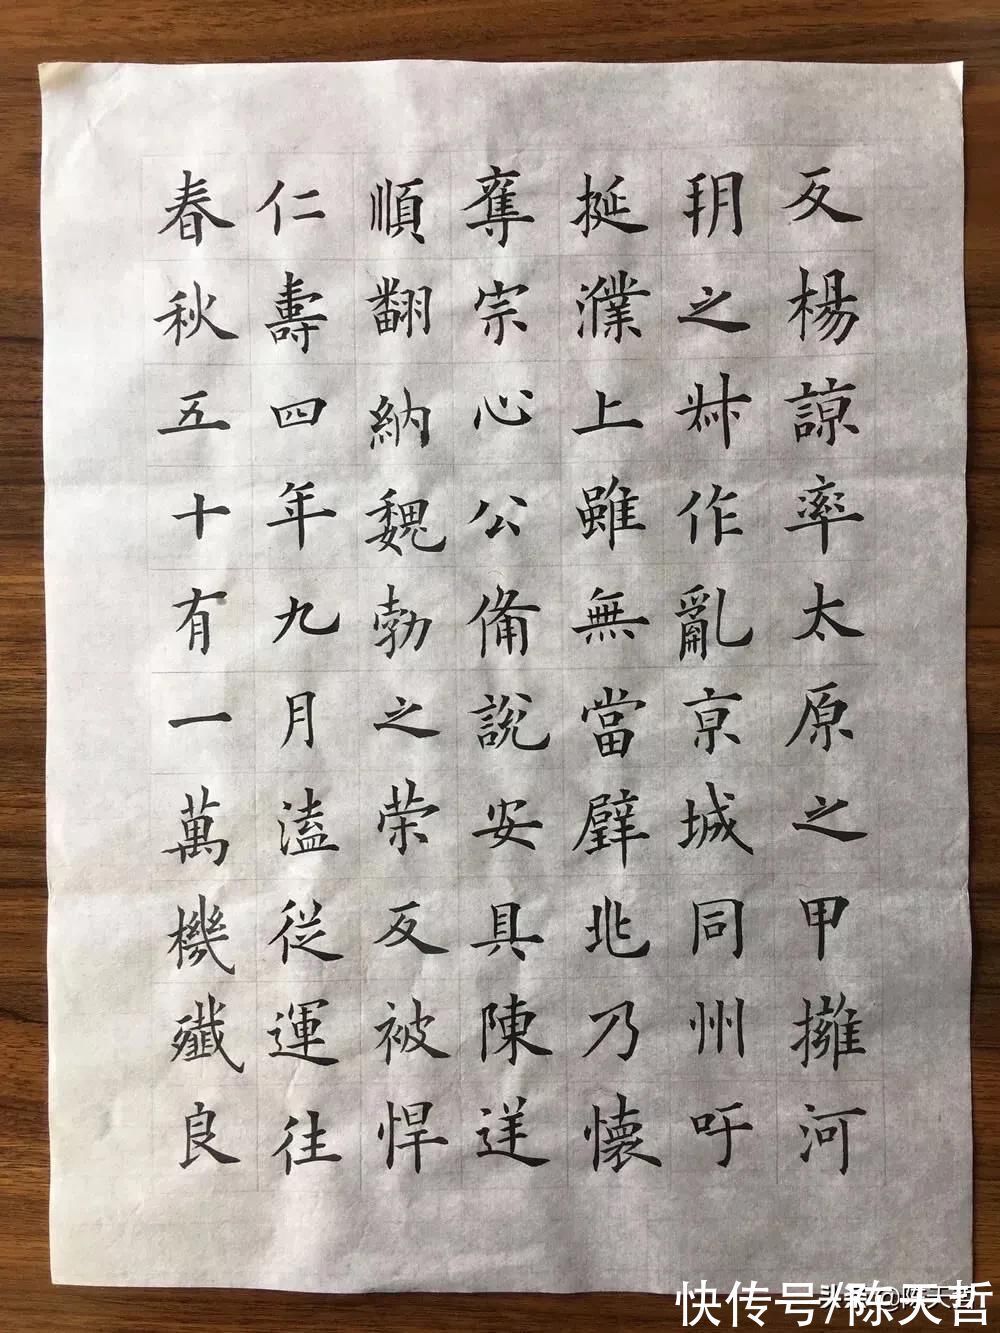 反楊諒率太原之甲擁河
玥之 作亂京城同州吁
挻濮上雖無當璧兆乃懷
奪宗心公備說安具陳逆
順翻納魏勃之荣反被悍
仁壽四年九月溘從運往
春秋五十有一萬機殲良
快传号/陈天哲